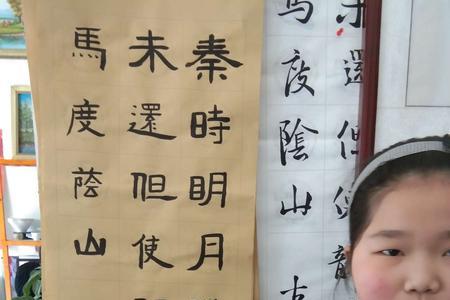 秦時明月
未還但使
馬度蔭山
未還但使龍
馬度陰山